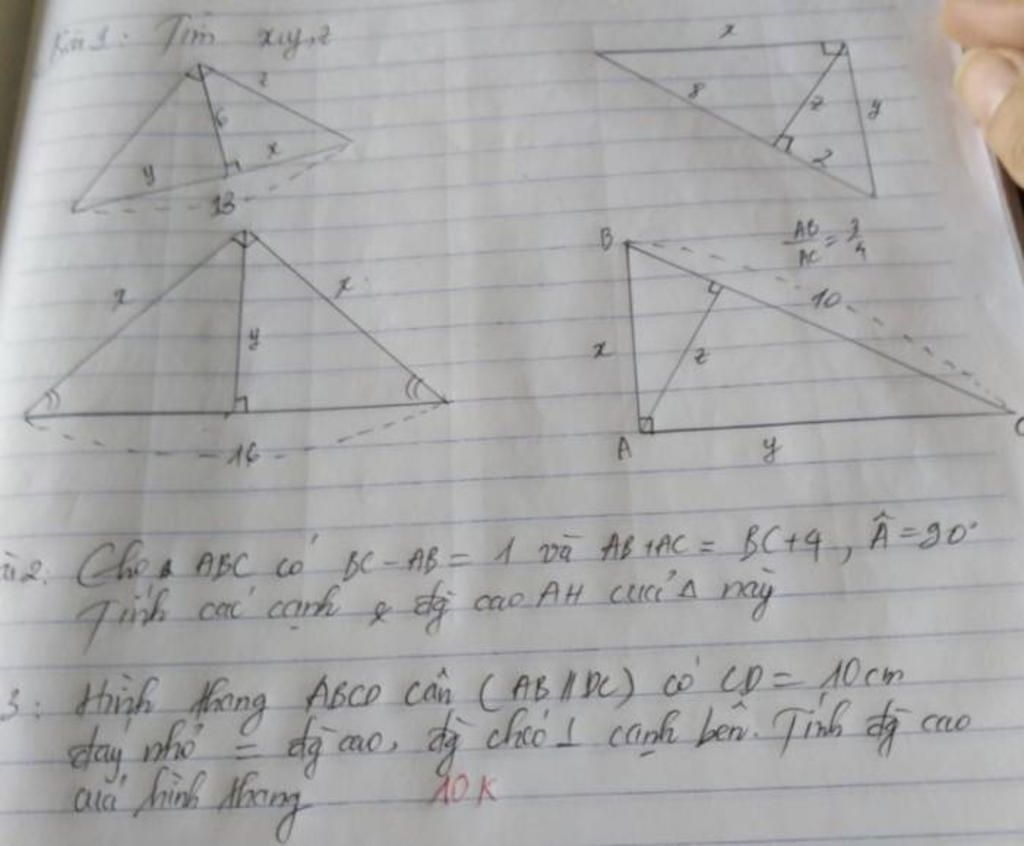 Bài 1: Tìm x,y,z
x
z
6
8
z
y
x
y
2
13
B
AB/AC = 3/4
x
x
10
y
x
z
16
A
y
C
ài 2. Cho Δ ABC có BC - AB = 1 và AB + AC = BC + 4, Â = 90°
Tính các cạnh & đg cao AH của Δ này
3: Hình thang ABCD cân (AB // DC) có CD = 10cm
đáy nhỏ = đg cao, đg chéo ⊥ cạnh bên. Tính đg cao
của hình thang 10K